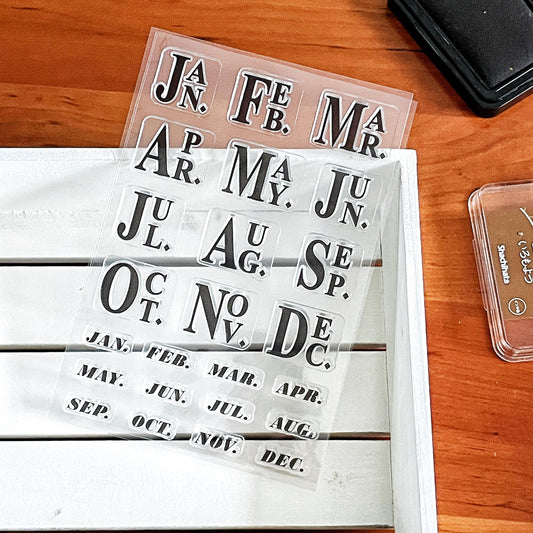 JAN. FEB. MAR.
APR. MAY. JUN.
JUL. AUG. SEP.
OCT. NOV. DEC.
JAN. FEB. MAR. APR.
MAY. JUN. JUL. AUG.
SEP. OCT. NOV. DEC.
Shachihata